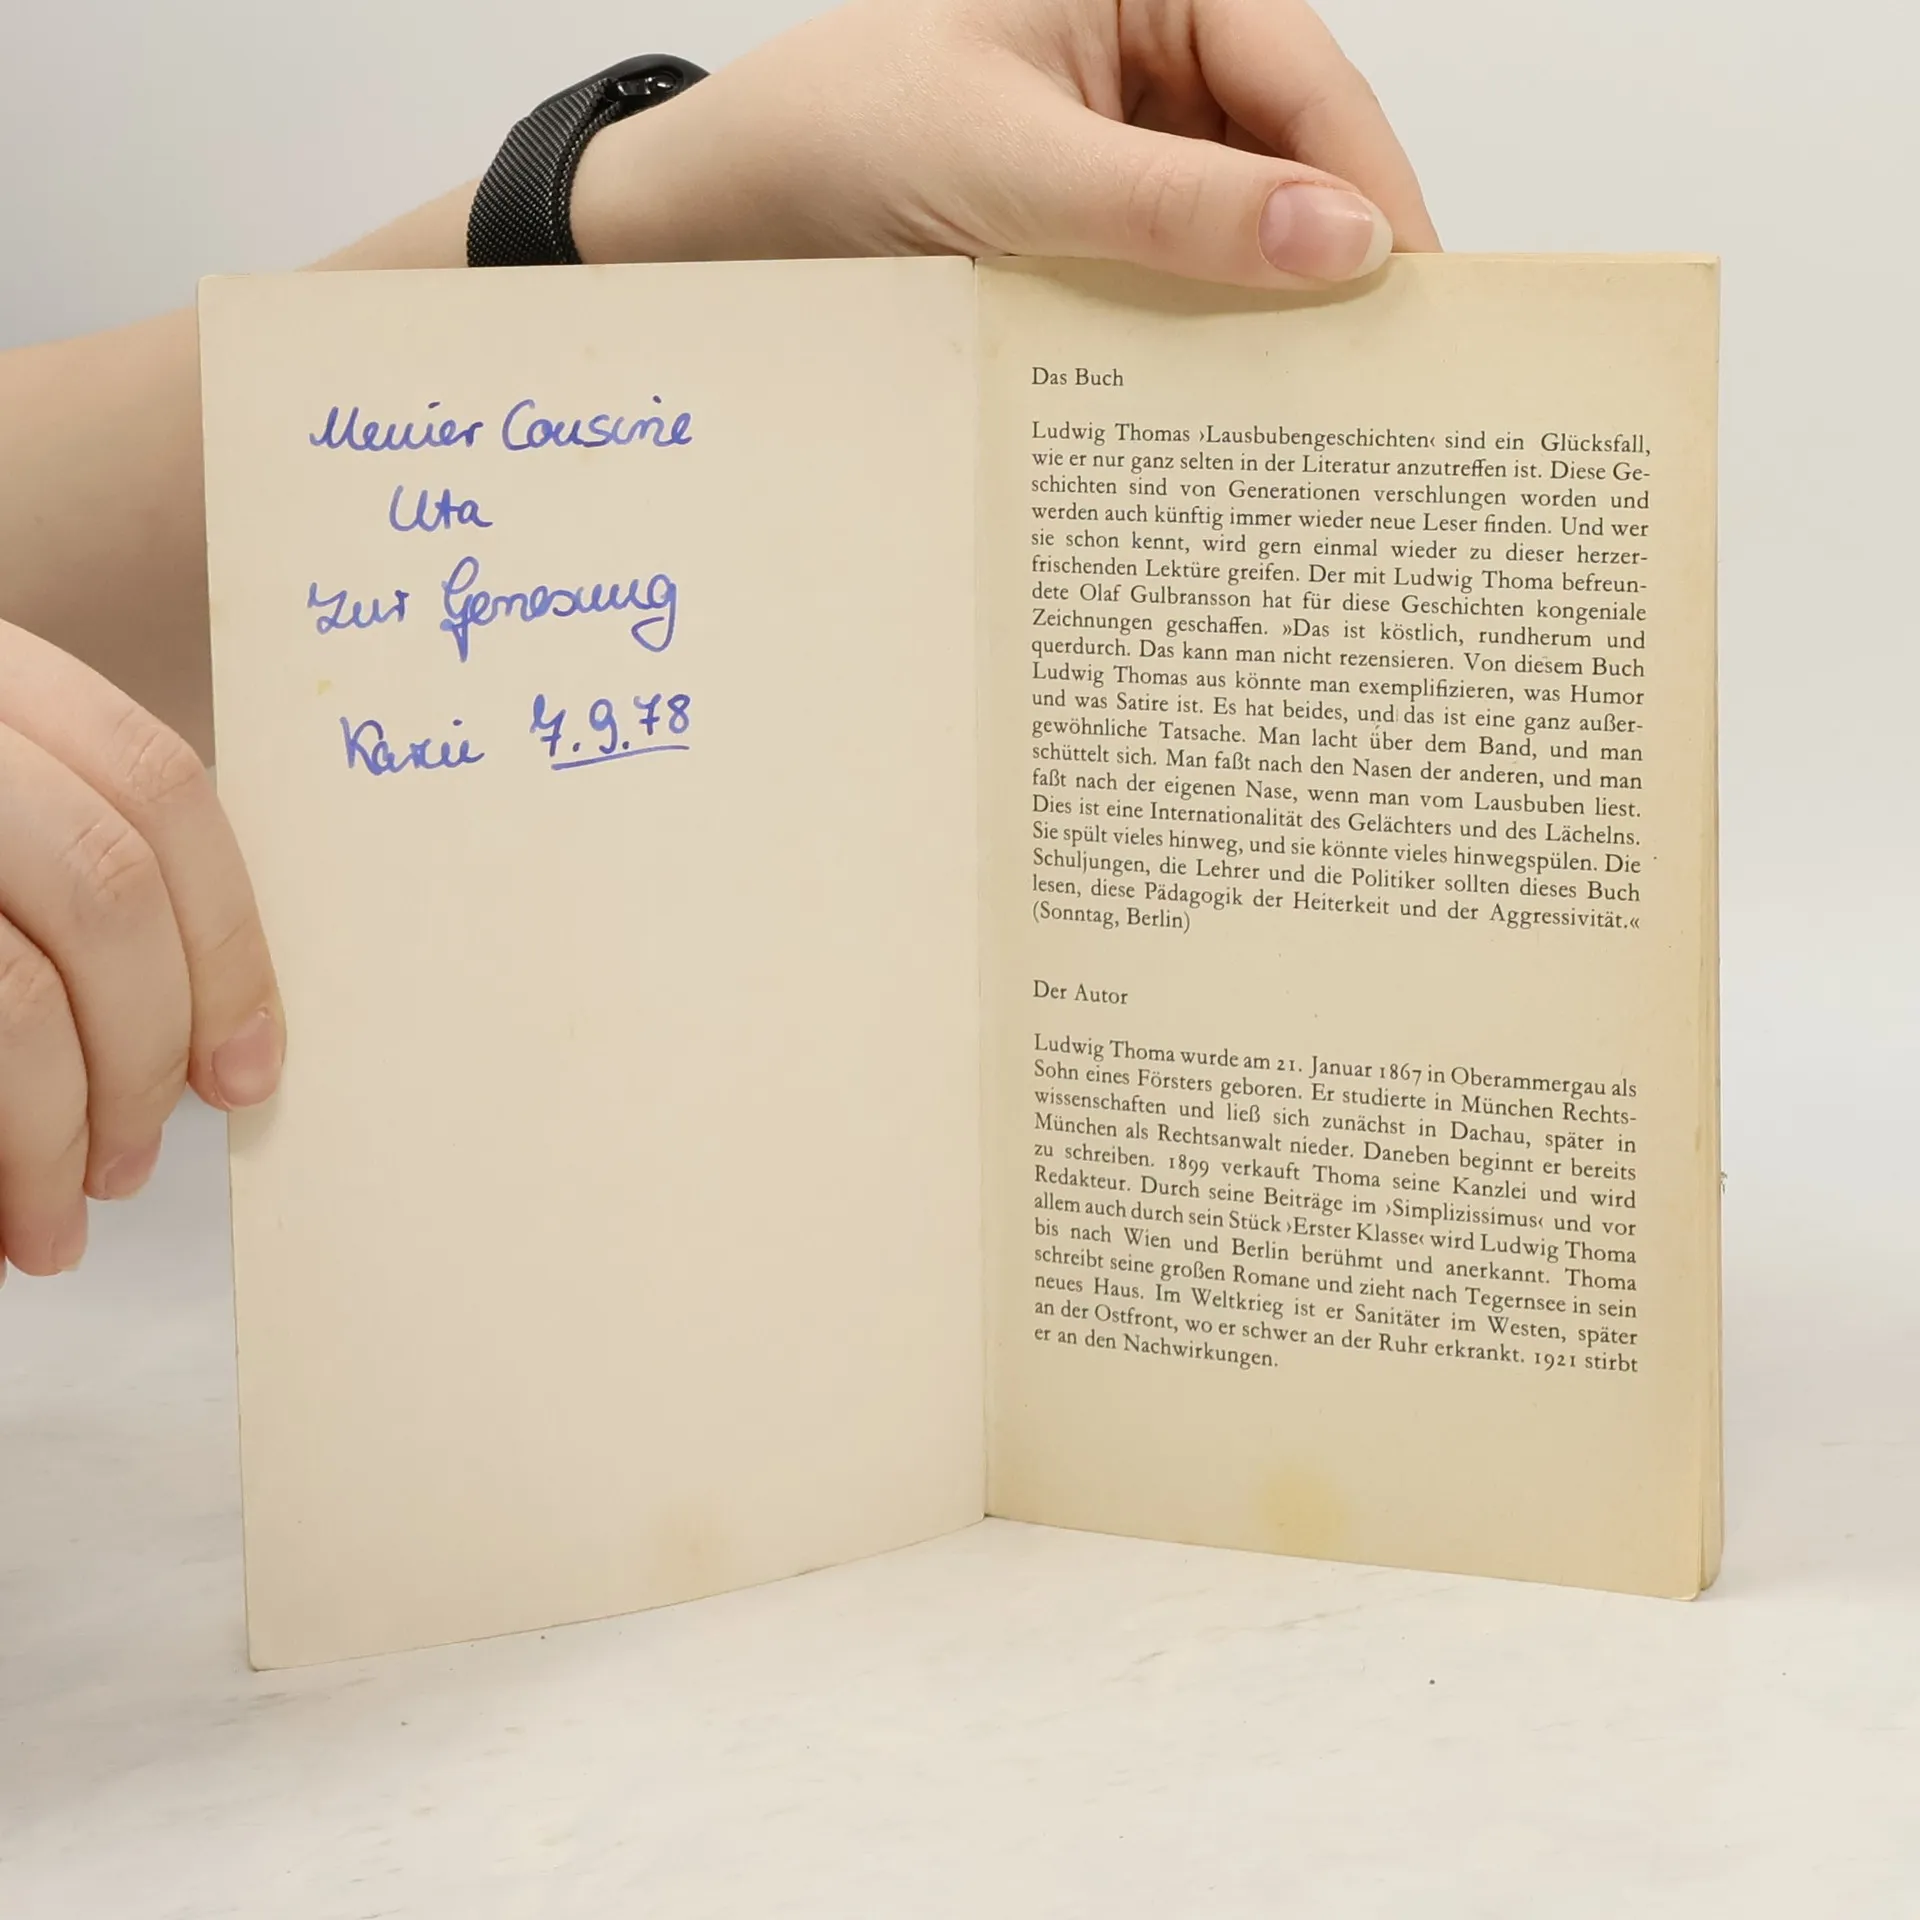 Meiner Cousine
Uta
zur Genesung
Karin 7.9.78
Das Buch
Ludwig Thomas ›Lausbubengeschichten‹ sind ein Glücksfall,
wie er nur ganz selten in der Literatur anzutreffen ist. Diese Ge-
schichten sind von Generationen verschlungen worden und
werden auch künftig immer wieder neue Leser finden. Und wer
sie schon kennt, wird gern einmal wieder zu dieser herzer-
frischenden Lektüre greifen. Der mit Ludwig Thoma befreun-
dete Olaf Gulbransson hat für diese Geschichten kongeniale
Zeichnungen geschaffen. »Das ist köstlich, rundherum und
querdurch. Das kann man nicht rezensieren. Von diesem Buch
Ludwig Thomas aus könnte man exemplifizieren, was Humor
und was Satire ist. Es hat beides, und das ist eine ganz außer-
gewöhnliche Tatsache. Man lacht über dem Band, und man
schüttelt sich. Man faßt nach den Nasen der anderen, und man
faßt nach der eigenen Nase, wenn man vom Lausbuben liest.
Dies ist eine Internationalität des Gelächters und des Lächelns.
Sie spült vieles hinweg, und sie könnte vieles hinwegspülen. Die
Schuljungen, die Lehrer und die Politiker sollten dieses Buch
lesen, diese Pädagogik der Heiterkeit und der Aggressivität.«
(Sonntag, Berlin)
Der Autor
Ludwig Thoma wurde am 21. Januar 1867 in Oberammergau als
Sohn eines Försters geboren. Er studierte in München Rechts-
wissenschaften und ließ sich zunächst in Dachau, später in
München als Rechtsanwalt nieder. Daneben beginnt er bereits
zu schreiben. 1899 verkauft Thoma seine Kanzlei und wird
Redakteur. Durch seine Beiträge im ›Simplizissimus‹ und vor
allem auch durch sein Stück ›Erster Klasse‹ wird Ludwig Thoma
bis nach Wien und Berlin berühmt und anerkannt. Thoma
schreibt seine großen Romane und zieht nach Tegernsee in sein
neues Haus. Im Weltkrieg ist er Sanitäter im Westen, später
an der Ostfront, wo er schwer an der Ruhr erkrankt. 1921 stirbt
er an den Nachwirkungen.